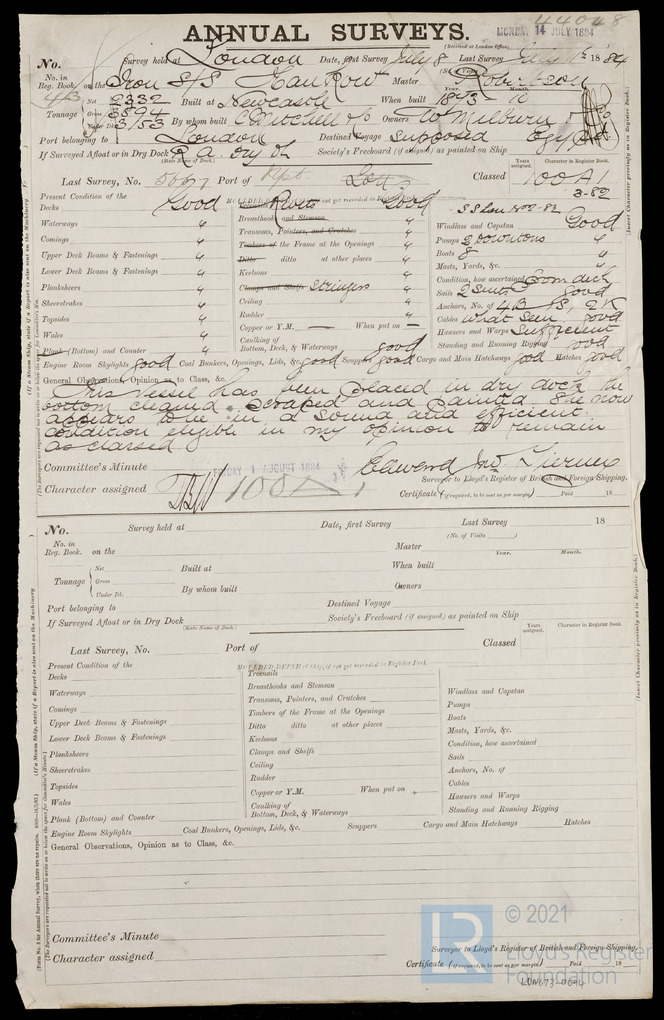 44048
ANNUAL SURVEYS.
MONDAY 14 JULY 1884
(Received at London Office,
No. Survey held at London Date, first Survey July 8 Last Survey July 1884
No. in Reg. Book. on the Iron S/S Master Robertson
Tonnage Net 2332 Built at Newcastle When built Year. 1873 Month. 10
Gross 3594 By whom built C Mitchell & Co Owners W Milburn
Under Dk. 3153
Port belonging to London Destined Voyage Supposed Egypt
If Surveyed Afloat or in Dry Dock R.A. dry dk Society's Freeboard (if assigned) as painted on Ship
(State Name of Dock.)
Years assigned. Character in Register Book.
Last Survey, No. Port of Classed 100A1
3.82
Present Condition of the
Decks Good
Waterways "
Comings "
Upper Deck Beams & Fastenings "
Lower Deck Beams & Fastenings "
Planksheers "
Sheerstrakes "
Topsides "
Wales "
Plank (Bottom) and Counter "
MOULDED DEPTH of ship, if not yet recorded in Register Book
Treenails Rivets Good
Breasthooks and Stemson "
Transoms, Pointers, and Crutches "
Timbers of the Frame at the Openings "
Ditto ditto at other places "
Keelsons "
Clamps and Shelfs Stringers "
Ceiling "
Rudder "
Copper or Y.M. — When put on —
Caulking of Bottom, Deck, & Waterways good
Windlass and Capstan Good
Pumps 2 Downtons "
Boats 8 "
Masts, Yards, &c. "
Condition, how ascertained From deck
Sails 2 Suits good
Anchors, No. of 4B, 1S, 2K
Cables what seen good
Hawsers and Warps Sufficient
Standing and Running Rigging good
Engine Room Skylights good Coal Bunkers, Openings, Lids, &c. good Scuppers good Cargo and Main Hatchways good Hatches good
General Observations, Opinion as to Class, &c.
This Vessel has been placed in dry dock the
bottom cleaned, scraped and painted. She now
appears to be in a sound and efficient
condition eligible in my opinion to remain
as classed.
Committee's Minute FRIDAY 1 AUGUST 1884
Edward Jno. Tierney
Surveyor to Lloyd's Register of British and Foreign Shipping.
Character assigned 100A1
Certificate (if required, to be sent as per margin) Paid 18
No. Survey held at Date, first Survey Last Survey 18
(No. of Visits )
No. in Reg. Book. on the Master
Year. Month.
Tonnage Net Built at When built
Gross By whom built Owners
Under Dk.
Port belonging to Destined Voyage
If Surveyed Afloat or in Dry Dock Society's Freeboard (if assigned) as painted on Ship
(State Name of Dock.)
Years assigned. Character in Register Book.
Last Survey, No. Port of Classed
Present Condition of the
Decks
Waterways
Comings
Upper Deck Beams & Fastenings
Lower Deck Beams & Fastenings
Planksheers
Sheerstrakes
Topsides
Wales
Plank (Bottom) and Counter
MOULDED DEPTH of ship, if not yet recorded in Register Book
Treenails
Breasthooks and Stemson
Transoms, Pointers, and Crutches
Timbers of the Frame at the Openings
Ditto ditto at other places
Keelsons
Clamps and Shelfs
Ceiling
Rudder
Copper or Y.M. When put on
Caulking of Bottom, Deck, & Waterways
Windlass and Capstan
Pumps
Boats
Masts, Yards, &c.
Condition, how ascertained
Sails
Anchors, No. of
Cables
Hawsers and Warps
Standing and Running Rigging
Engine Room Skylights Coal Bunkers, Openings, Lids, &c. Scuppers Cargo and Main Hatchways Hatches
General Observations, Opinion as to Class, &c.
Committee's Minute
Surveyor to Lloyd's Register of British and Foreign Shipping.
Character assigned
Certificate (if required, to be sent as per margin) Paid 18
LR © 2021
Lloyd's Register
Foundation